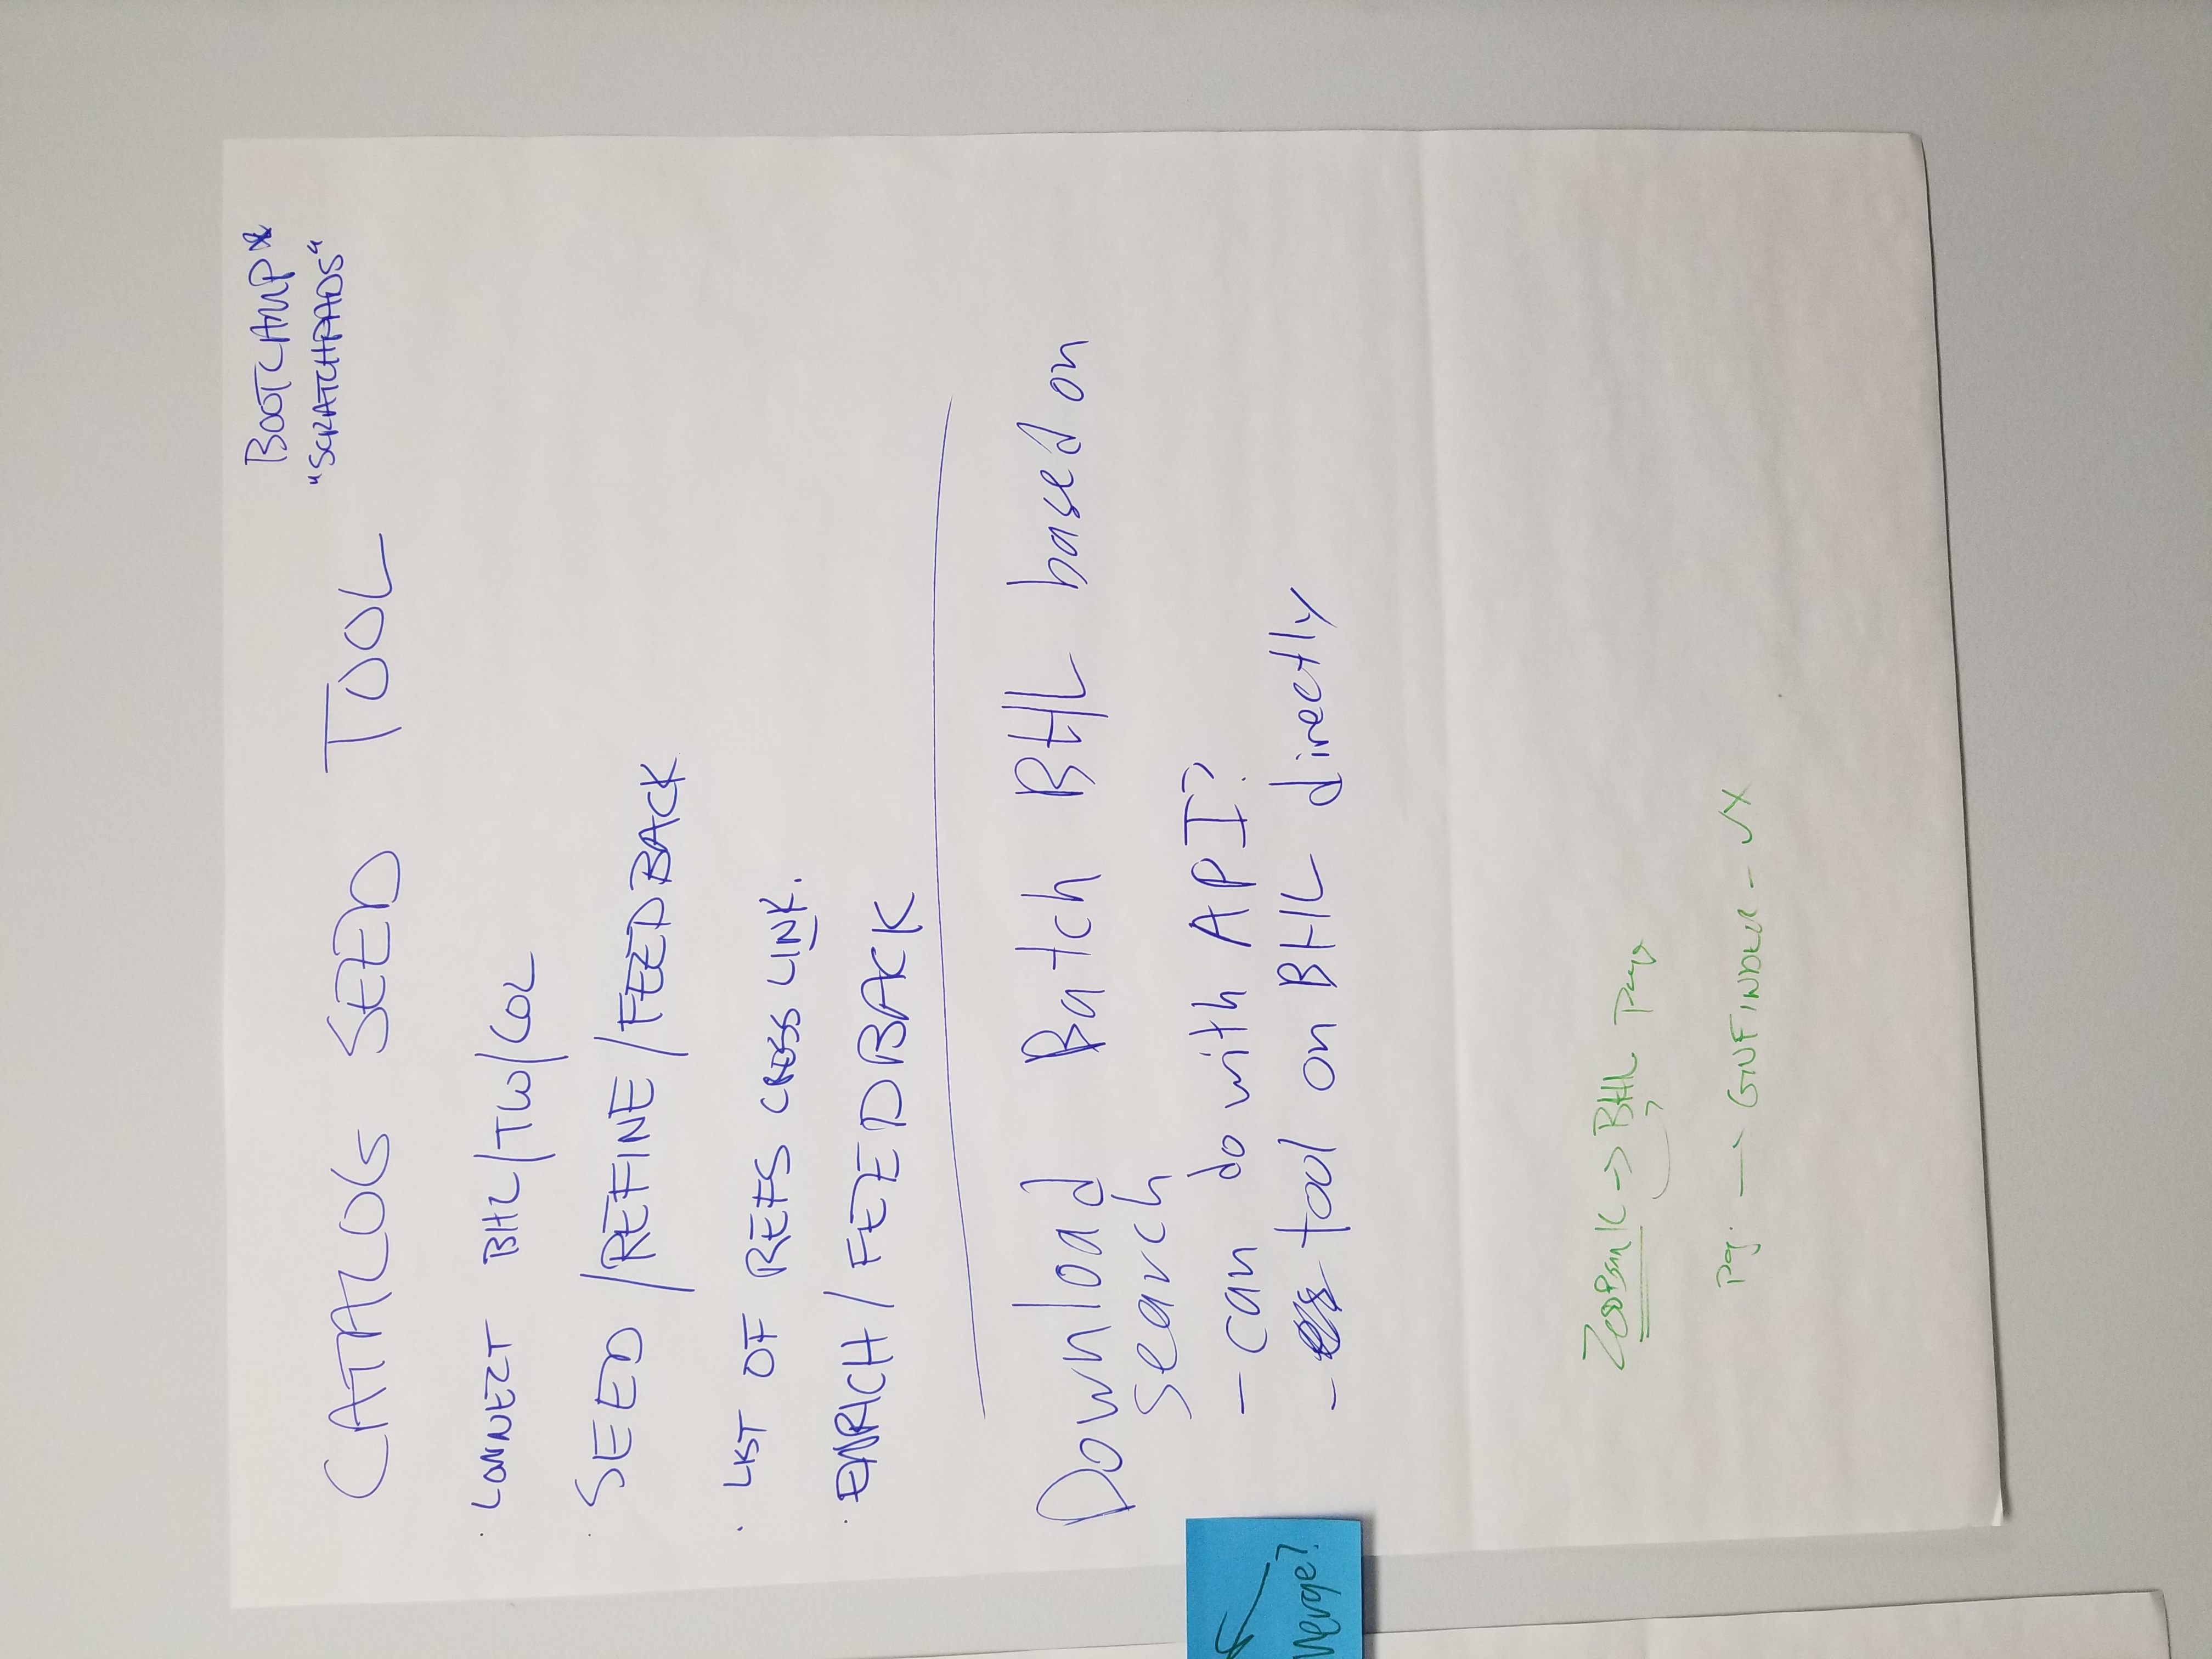 BOOTCAMP
"SCRATCHPADS"
CATALOG SEED TOOL
· CONNECT BHL/TW/COL
· SEED/REFINE/FEEDBACK
· LIST OF REFS CROSS LINK.
· ENRICH/FEEDBACK
Download Batch BHL based on
search
- can do with API?
- tool on BHL directly
Merge?
ZooBank -> BHL page
pg. — GNFINDER - √X